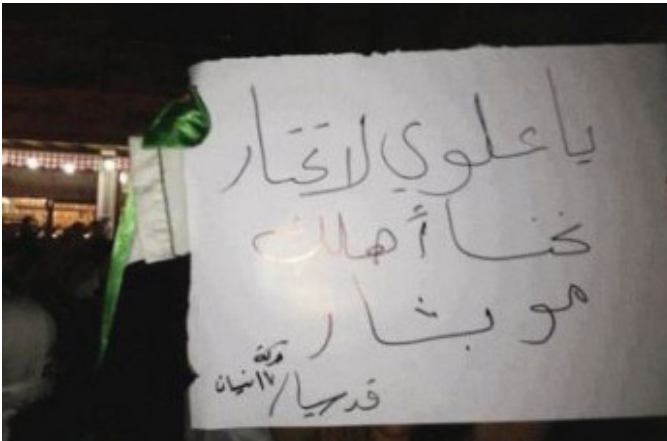 يا علوي لا تحتار
نحنا أهلك
مو بشار
قدسيا / حركة ١٧ نيسان